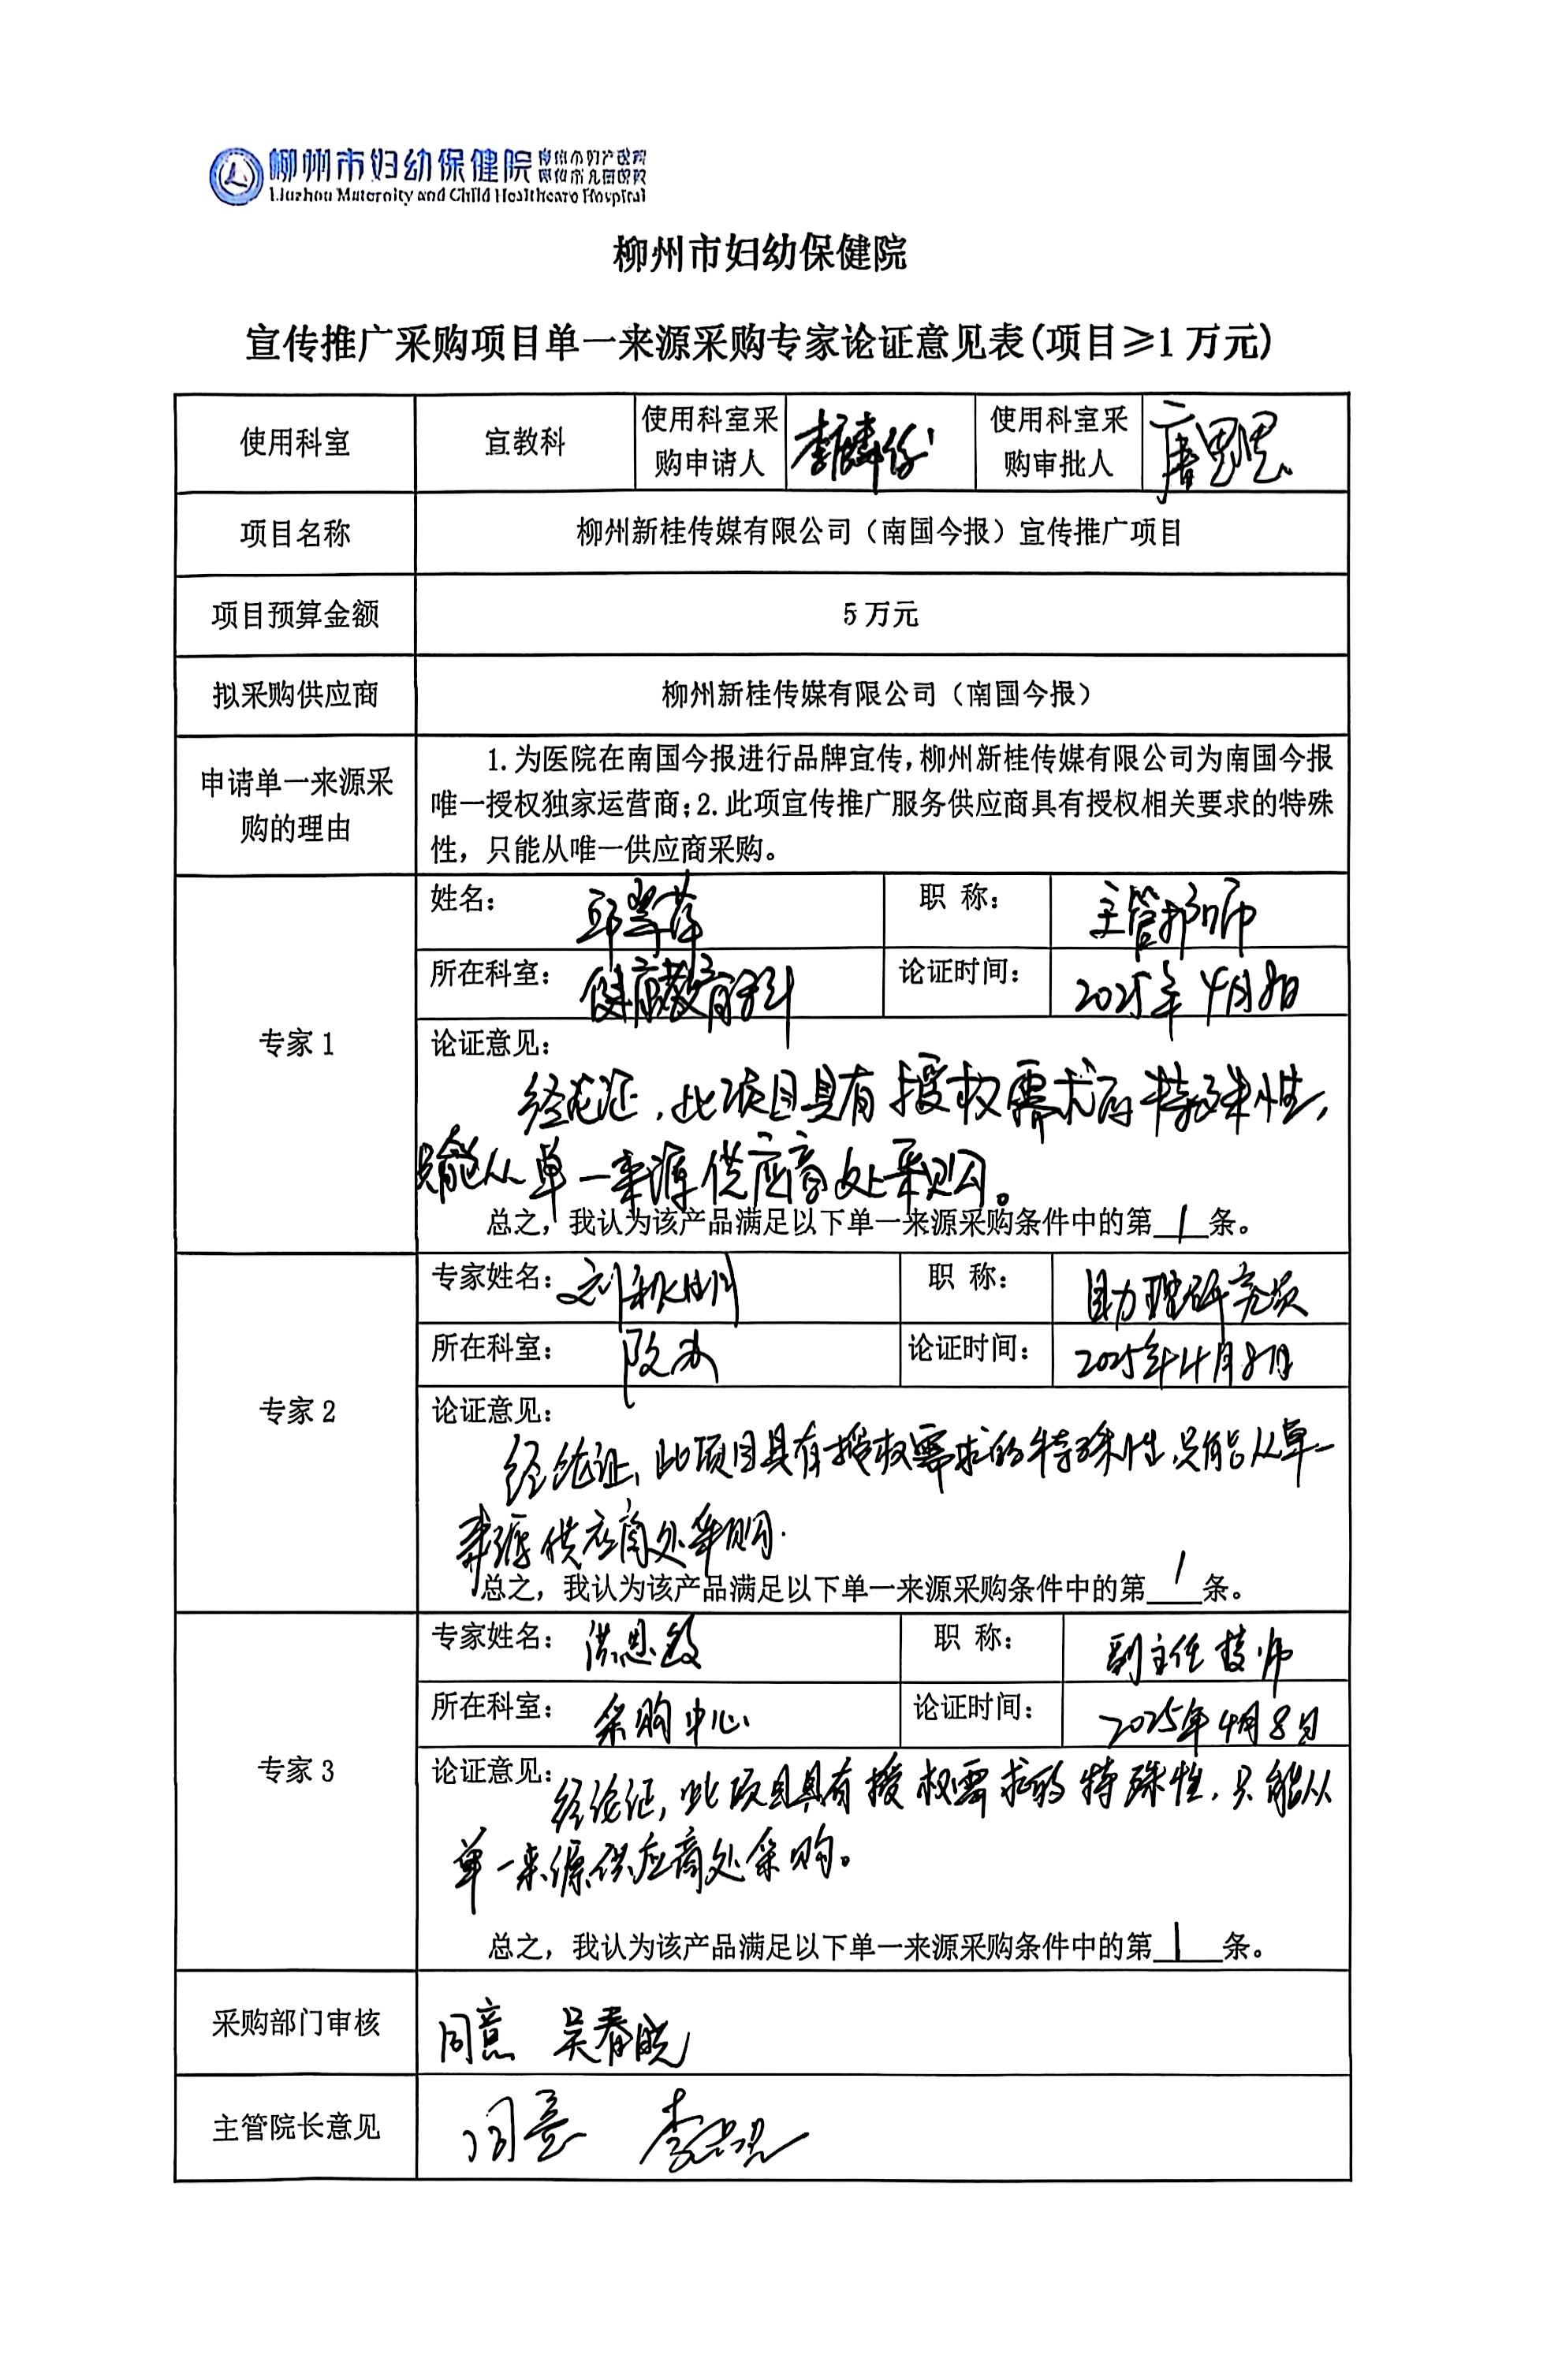 柳州市妇幼保健院
Liuzhou Maternity and Child Healthcare Hospital
柳州市妇幼保健院
宣传推广采购项目单一来源采购专家论证意见表(项目≥1万元)
使用科室 宣教科 使用科室采购申请人 使用科室采购审批人 唐思思
项目名称 柳州新桂传媒有限公司（南国今报）宣传推广项目
项目预算金额 5万元
拟采购供应商 柳州新桂传媒有限公司（南国今报）
申请单一来源采购的理由
1.为医院在南国今报进行品牌宣传,柳州新桂传媒有限公司为南国今报
唯一授权独家运营商;2.此项宣传推广服务供应商具有授权相关要求的特殊
性，只能从唯一供应商采购。
专家1
姓名： 职 称： 主管护师
所在科室： 健康教育科 论证时间： 2025年4月8日
论证意见：
经论证，此项目具有授权需求的特殊性，
只能从单一来源供应商处采购。
总之，我认为该产品满足以下单一来源采购条件中的第1条。
专家2
专家姓名： 职 称： 助理研究员
所在科室： 院办 论证时间： 2025年4月8日
论证意见：
经论证，此项目具有授权需求的特殊性，只能从单一
来源供应商处采购.
总之，我认为该产品满足以下单一来源采购条件中的第1条。
专家3
专家姓名： 职 称： 副主任技师
所在科室： 采购中心 论证时间： 2025年4月8日
论证意见：
经论证，此项目具有授权需求的特殊性，只能从
单一来源供应商处采购。
总之，我认为该产品满足以下单一来源采购条件中的第1条。
采购部门审核 同意 吴春晓
主管院长意见 同意